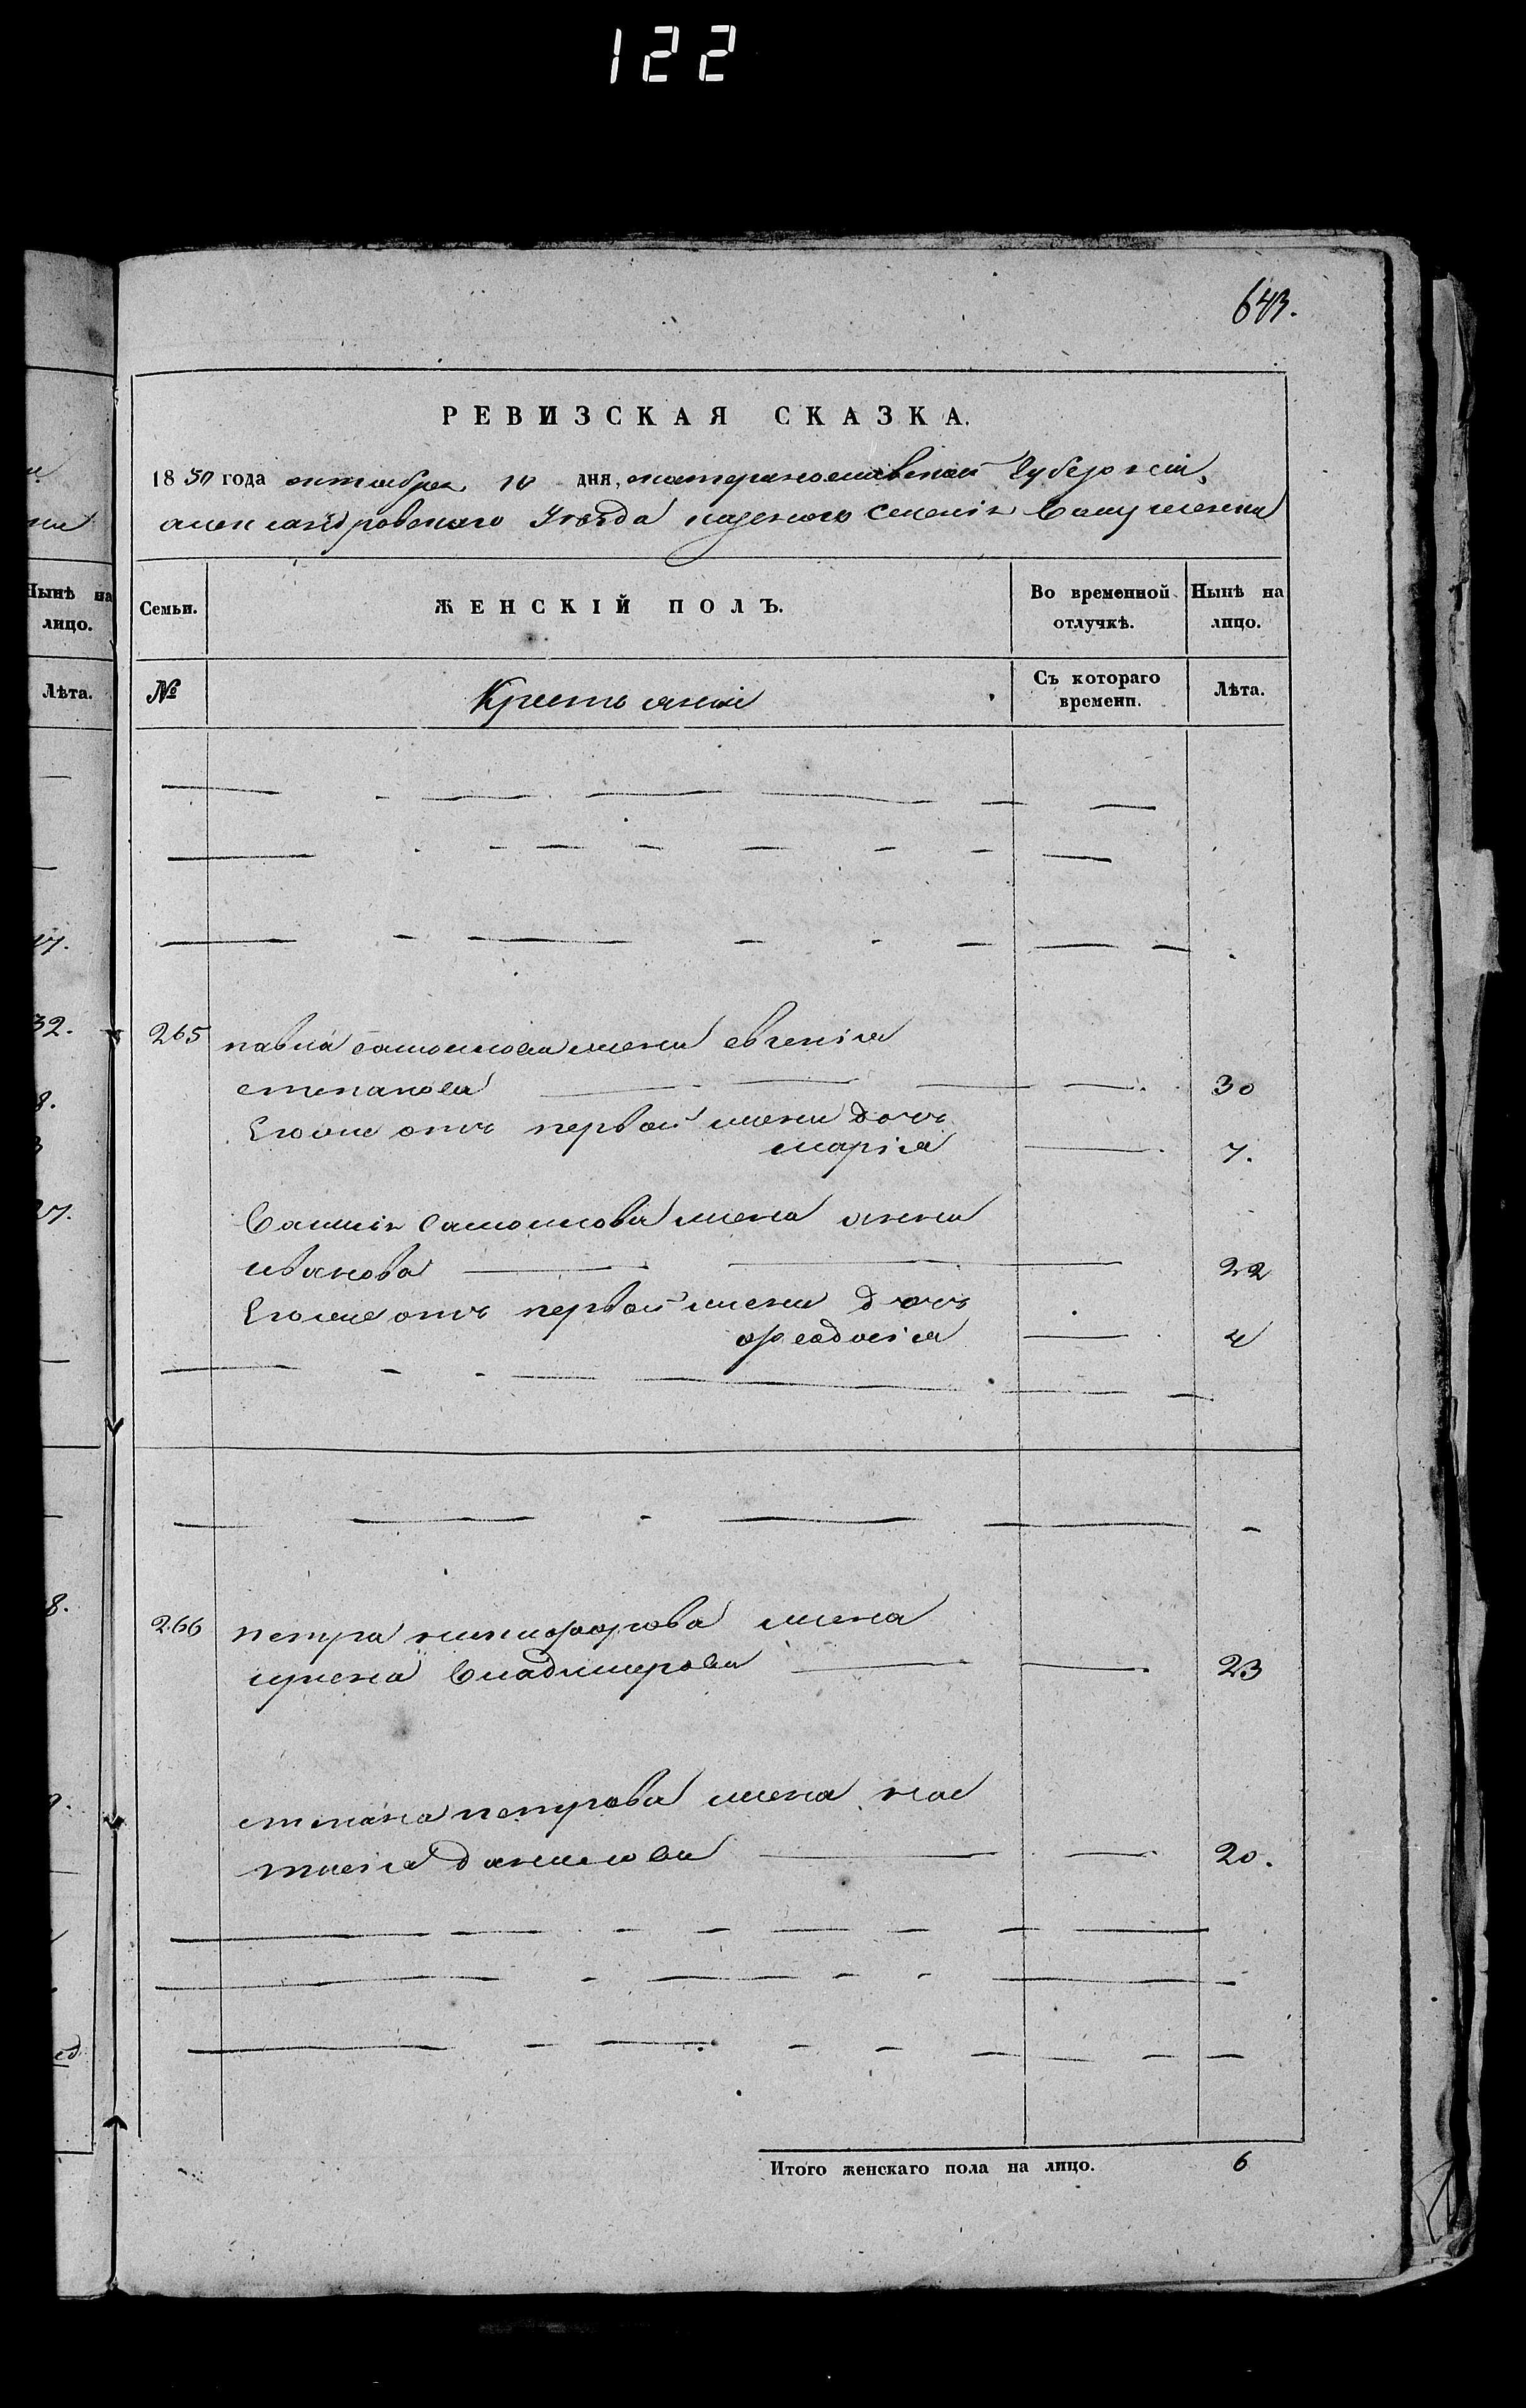 122
643.
РЕВИЗСКАЯ СКАЗКА.
1850 года октября 10 дня, екатеринославской губерніи,
александровскаго Уезда казенаго селенія
Нынѣ на лицо.
Семьи.
ЖЕНСКІЙ ПОЛЪ.
Во временной отлучкѣ.
Нынѣ на лицо.
Лѣта.
№
Крестьянкі
Съ котораго времени.
Лѣта.
17.
32.
265 павла самоилова жена евгенія
степанова 30
8.
Егоже отъ первой жены дочь
марія 7.
27.
Самоилова жена анна
иванова 22
Егоже отъ первой жены дочь
феодосія 4
8.
266 петра никифорова жена
ирина владимерова 23
степана петрова жена нас
тасія данилова 20.
Итого женскаго пола на лицо. 6